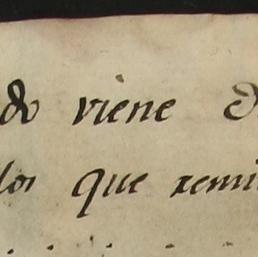 do viene d
los que remi